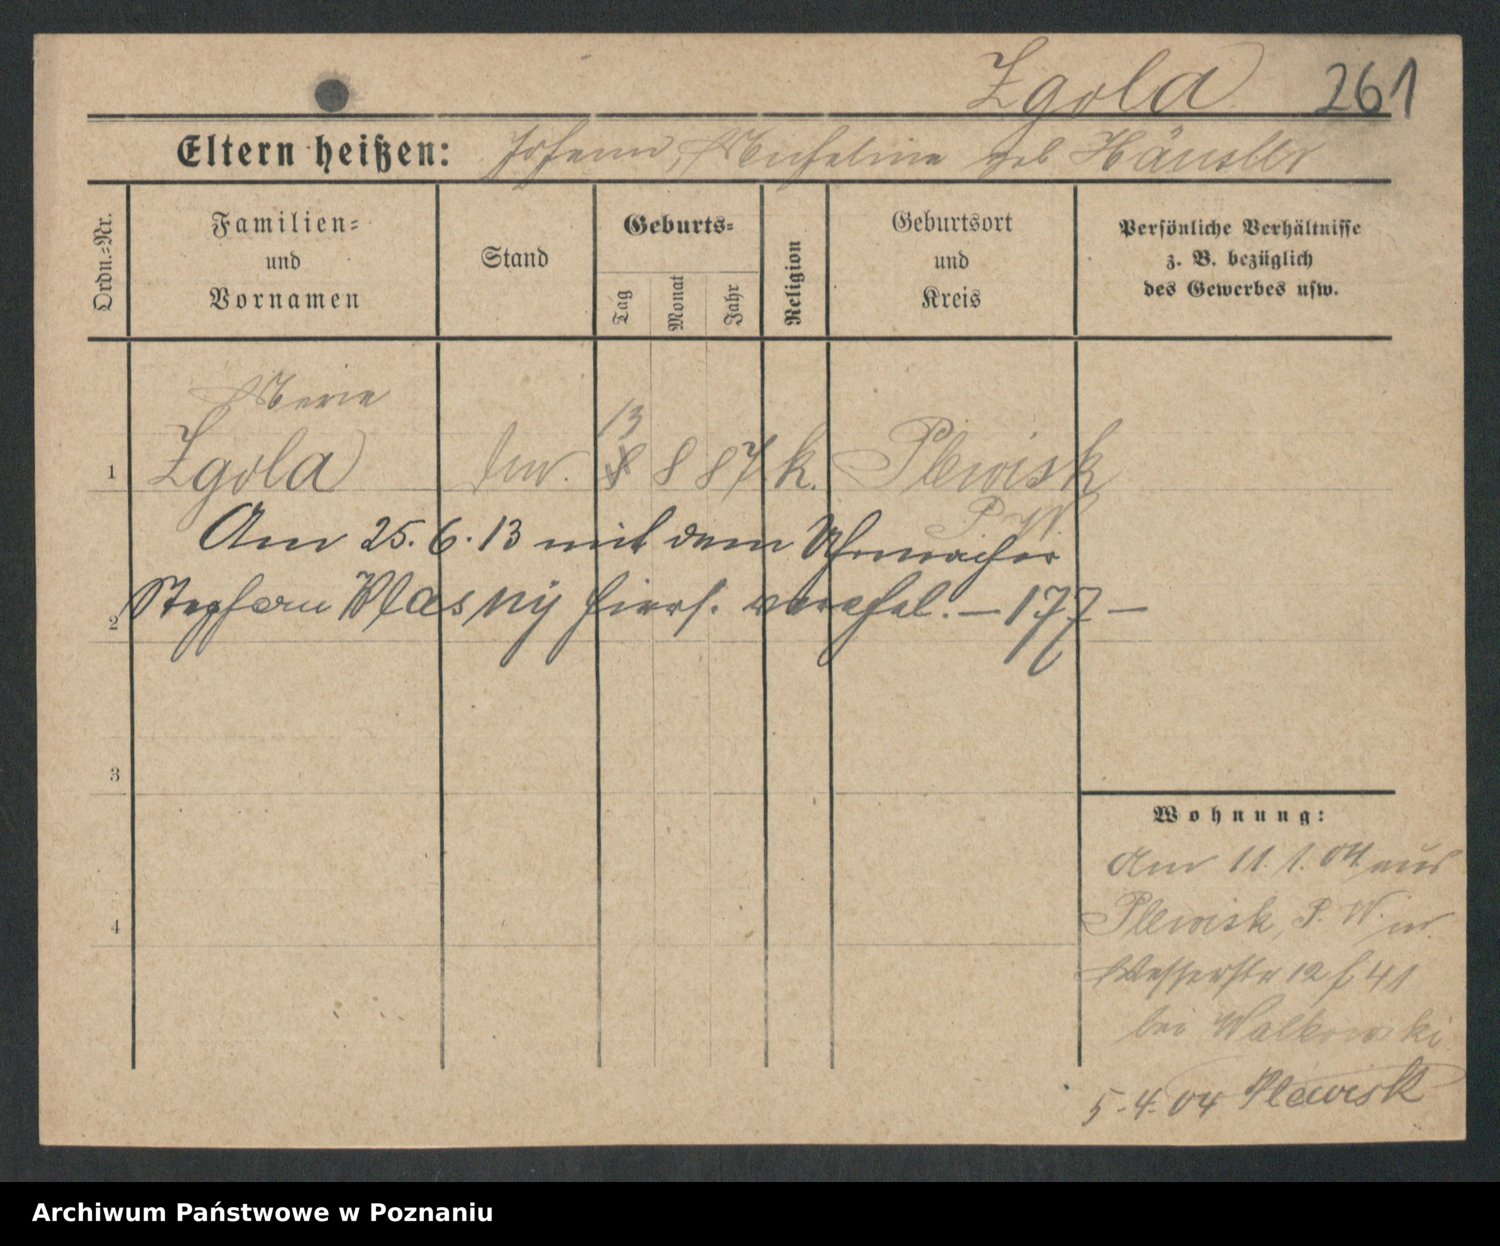 Zgola 261
Eltern heißen: Johann, Michaline geb Häusler
Ordn.-Nr.
Familien-
und
Vornamen
Stand
Geburts-
Tag
Monat
Jahr
Religion
Geburtsort
und
Kreis
Persönliche Verhältnisse
z. B. bezüglich
des Gewerbes usw.
Marie
13
1 Zgola 8 8 87 k. Plewisk
P. W.
Am 25.6.13 mit dem Uhrmacher
2 Stephan Wlasny hiers. verehel. – 177 –
3
Wohnung:
Am 11.1.04 aus
Plewisk, P. W. n.
12 41
4
bei Walkowski
5.4.04 Plewisk
Archiwum Państwowe w Poznaniu